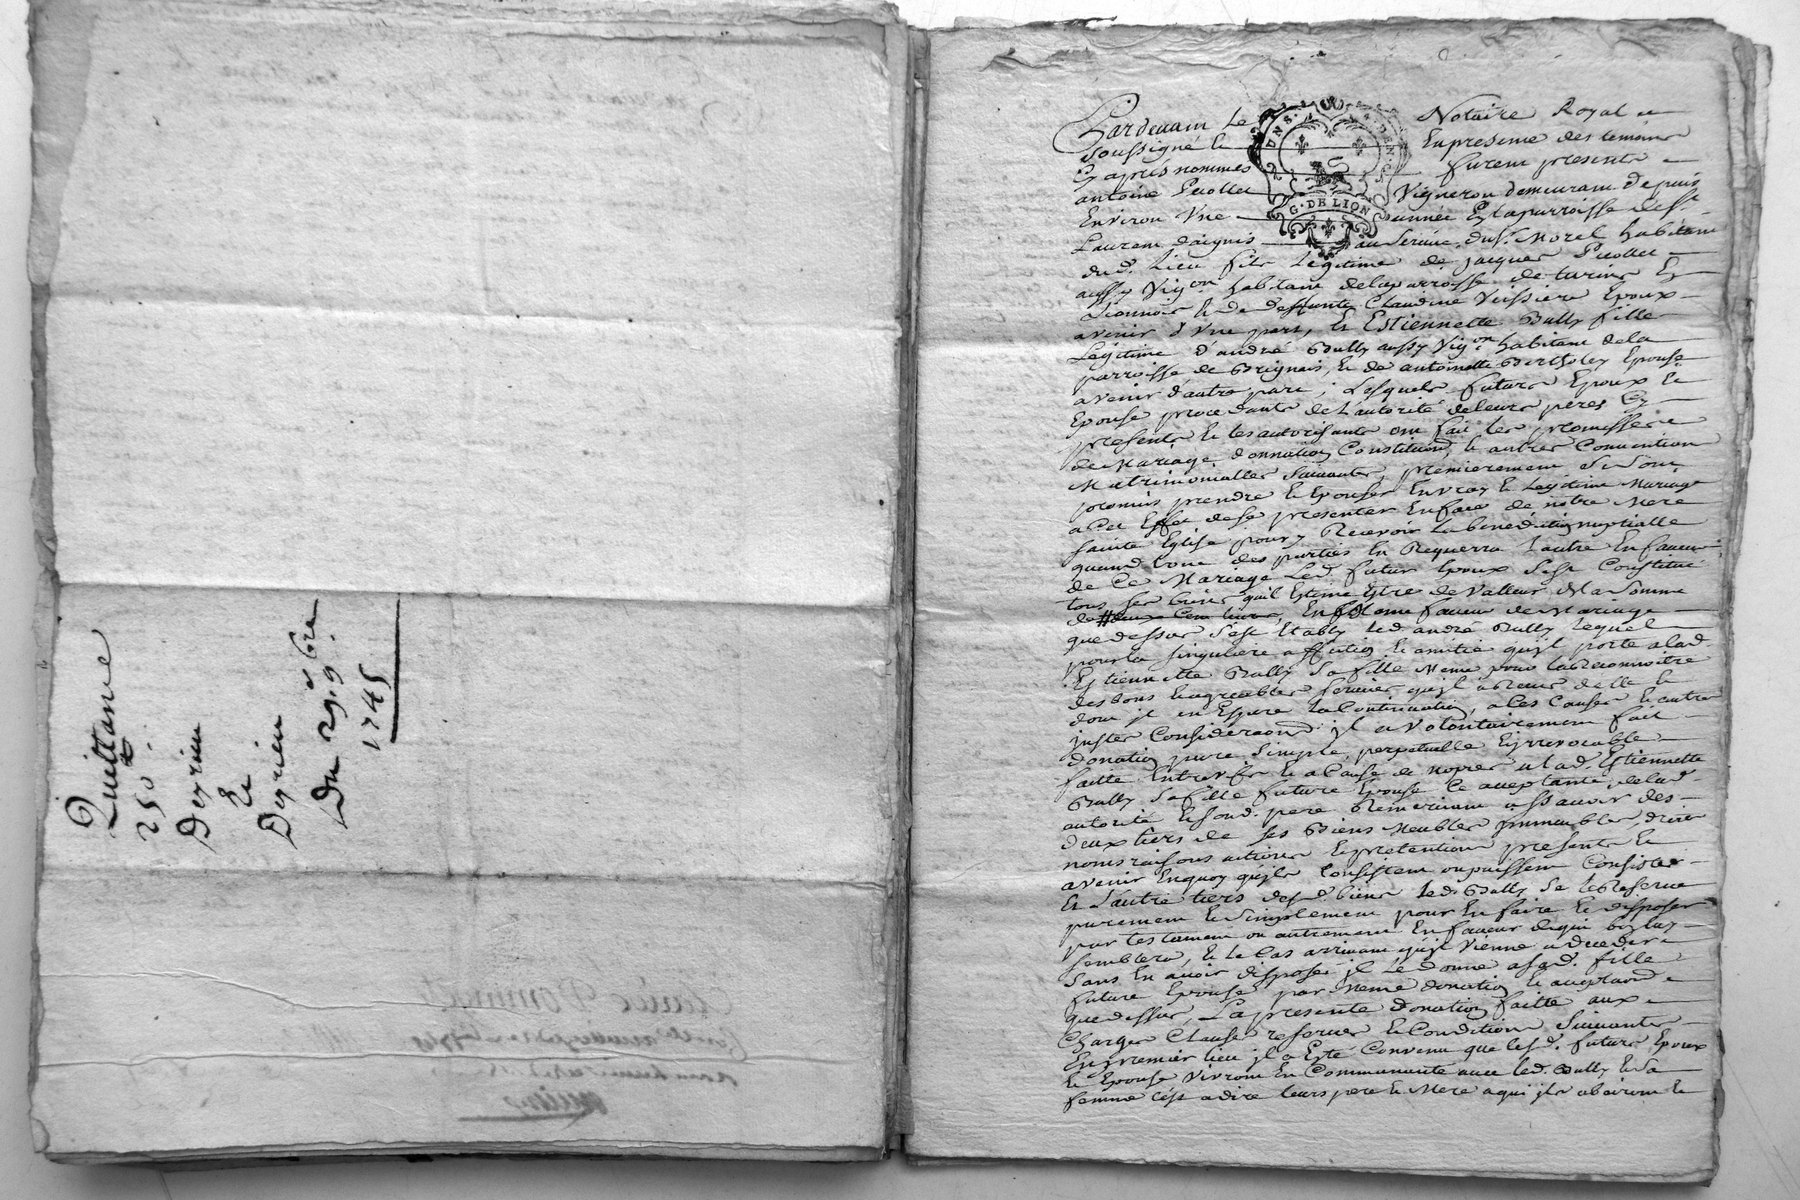 Quittance
250
Deyrieu
Et
Deyrieu
Du 29 9bre
1745
Pardevant Le Notaire Royal
soussigné Et En presence des temoins
Cy aprés nommés furent presents
antoine Pitollet Vigneron demeurant depuis
Environ Une année En la parroisse de St
Laurent daignis au service du Sr. Morel habitant
dud. Lieu fils Legitime de jacques Pitollet
aussy Vigon habitant de la parroisse de turins En
Lionnois Et de deffunte Claudine Veissiere Epoux
avenir d'Une part, Et Estiennette Bally fille
Legitime d'andré Bally aussy Vigon habitant de la
parroisse de Brignais, Et de antoinette Bertholey Epouse
avenir d'autre part, Lesquels futurs Epoux Et
Epouse procedants de L'autorité de leurs peres Cy
presents Et les autorisants ont fait les promesses
de Mariage donnation Constitution, Et autres Conventions
Matrimonialles suivantes, premierement se sont
promis prendre Et Epouser En vray Et Legitime Mariage
a Cet Effet de se presenter En face de notre Mere
sainte Eglise pour y Recevoir la benediction nuptialle
quand l'une des parties En Requerra l'autre En faveur
de Ce Mariage Led. futur Epoux s'est Constitué
tous ses biens qu'il Estime Estre de Valleur de la somme
de deux Cent livres, En même faveur de Mariage
que dessus s'est Etably led. andré Bally lequel
pour la singuliere affection Et amitié qu'il porte a lad.
Estiennette Bally sa fille Meme pour la Reconnoitre
des bons Et agreables services qu'il a Receus d'elle Et
dont il en Espere la Continuation, a Ces Causes Et autres
justes Considerations il a volontairement fait
donation pure simple, perpetuelle Et irrevocable
faitte Entre vifs Et a Cause de Nopces a lad. Estiennette
Bally sa fille future Epouse Ce acceptante, de lad.
autorité Et sond. pere Remerciant assavoir des
deux tiers de ses Biens Meubles jmmeubles, droits
noms raisons actions Et pretentions presents Et
avenir En quoy qu'ils Consistent ou puissent Consister
Et L'autre tiers desd. biens led. Bally se le Reserve
purement Et simplement pour En faire Et disposer
par testament ou autrement En faveur de qui bon luy
semblera, Et le Cas arrivant qu'il vienne a deceder
sans En avoir disposé il Le donne a sad. fille
future Epouse par Meme donation Et acceptation
que dessus, La presente donation faitte aux
Charges Clauses reserves Et Conditions suivantes
En premier lieu il a Esté Convenu que lesd. futurs Epoux
Et Epouse vivront En Communauté avec led. Bally Et sa
femme C'est a dire leurs pere Et Mere a qui ils obeiront Et
G. DE LION